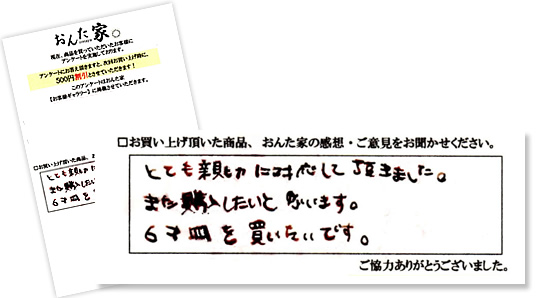 おんた家
現在、商品を買っていただいたお客様に
アンケートを実施しております。
アンケートにお答え頂きますと、次回お買い上げ時に、
500円割引とさせていただきます！
このアンケートはおんた家
【お客様ギャラリー】に掲載させていただきます。
□お買い上げ頂いた商品、
とても親切
また購入したい
6寸皿を
□お買い上げ頂いた商品、おんた家の感想・ご意見をお聞かせください。
とても親切に対応して頂きました。
また購入したいと思います。
6寸皿を買いたいです。
ご協力ありがとうございました。